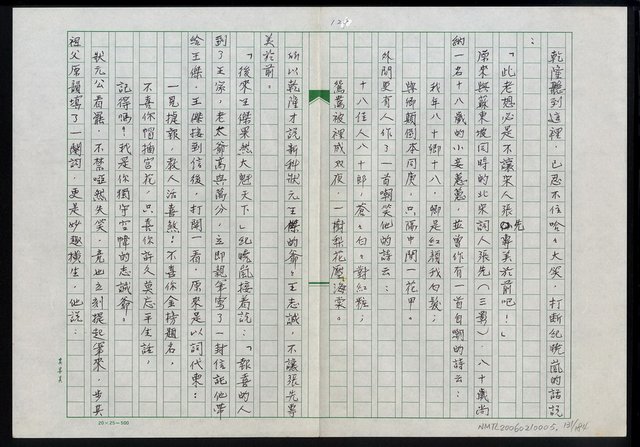 129
乾隆聽到這裡，已忍不住哈々大笑，打斷紀曉嵐的話說
：
「此老想必是不讓宋人張先專美於前吧！」
原來與蘇東坡同時的北宋詞人張先（三影），八十歲尚
納一名十八歲的小妾，並曾作有一首自嘲的詩云：
我年八十卿十八，卿是紅顏我白髮；
與卿顛倒本同庚，只隔中間一花甲。
外間更有人作了一首嘲笑他的詩云：
十八佳人八十郎，蒼々白々對紅粧；
鴛鴦被裡成双夜，一樹梨花壓海棠。
所以乾隆才說新科狀元王傑的爺々王志誠，不讓張先專
美於前。
「後來王傑果然大魁天下」紀曉嵐接着說：「報喜的人
到了王家，老太爺高興萬分，立即親筆寫了一封信託他帶
給王傑，王傑接到信後，打開一看，原來是以詞代柬：
一見捷報，教人活喜煞！不喜你金榜題名，
不喜你帽插宮花，只喜你許久莫忘平生話，
記得嗎？我是你獨守空幃的志誠爺。
狀元公看罷，不禁啞然失笑，竟也立刻提起筆來，步其
祖父原韻填了一闋詞，更是妙趣橫生，他說：
20×25=500
NMTL20050210005, 131/184